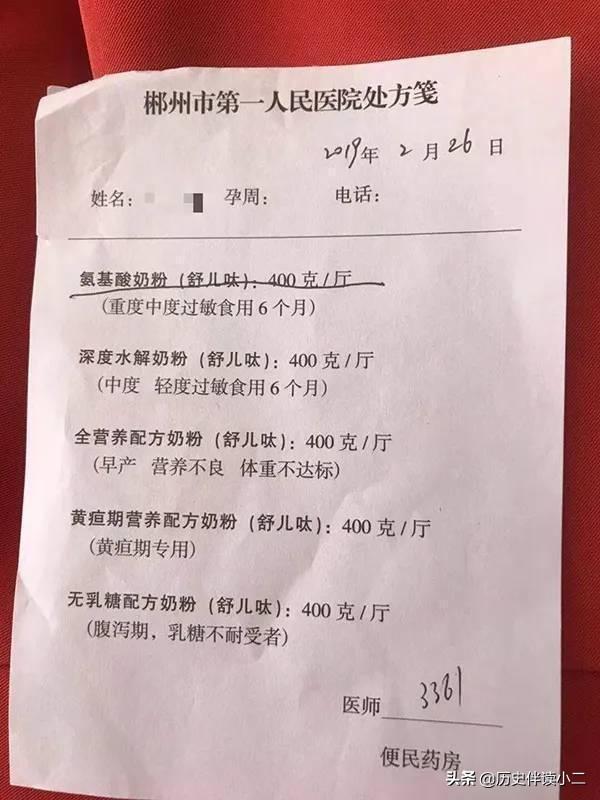 郴州市第一人民医院处方笺
2019年 2月26日
姓名： 孕周： 电话：
氨基酸奶粉（舒儿呔）：400克/厅
（重度中度过敏食用6个月）
深度水解奶粉（舒儿呔）：400克/厅
（中度 轻度过敏食用6个月）
全营养配方奶粉（舒儿呔）：400克/厅
（早产 营养不良 体重不达标）
黄疸期营养配方奶粉（舒儿呔）：400克/厅
（黄疸期专用）
无乳糖配方奶粉（舒儿呔）：400克/厅
（腹泻期，乳糖不耐受者）
医师 3361
便民药房
头条 @历史伴读小二